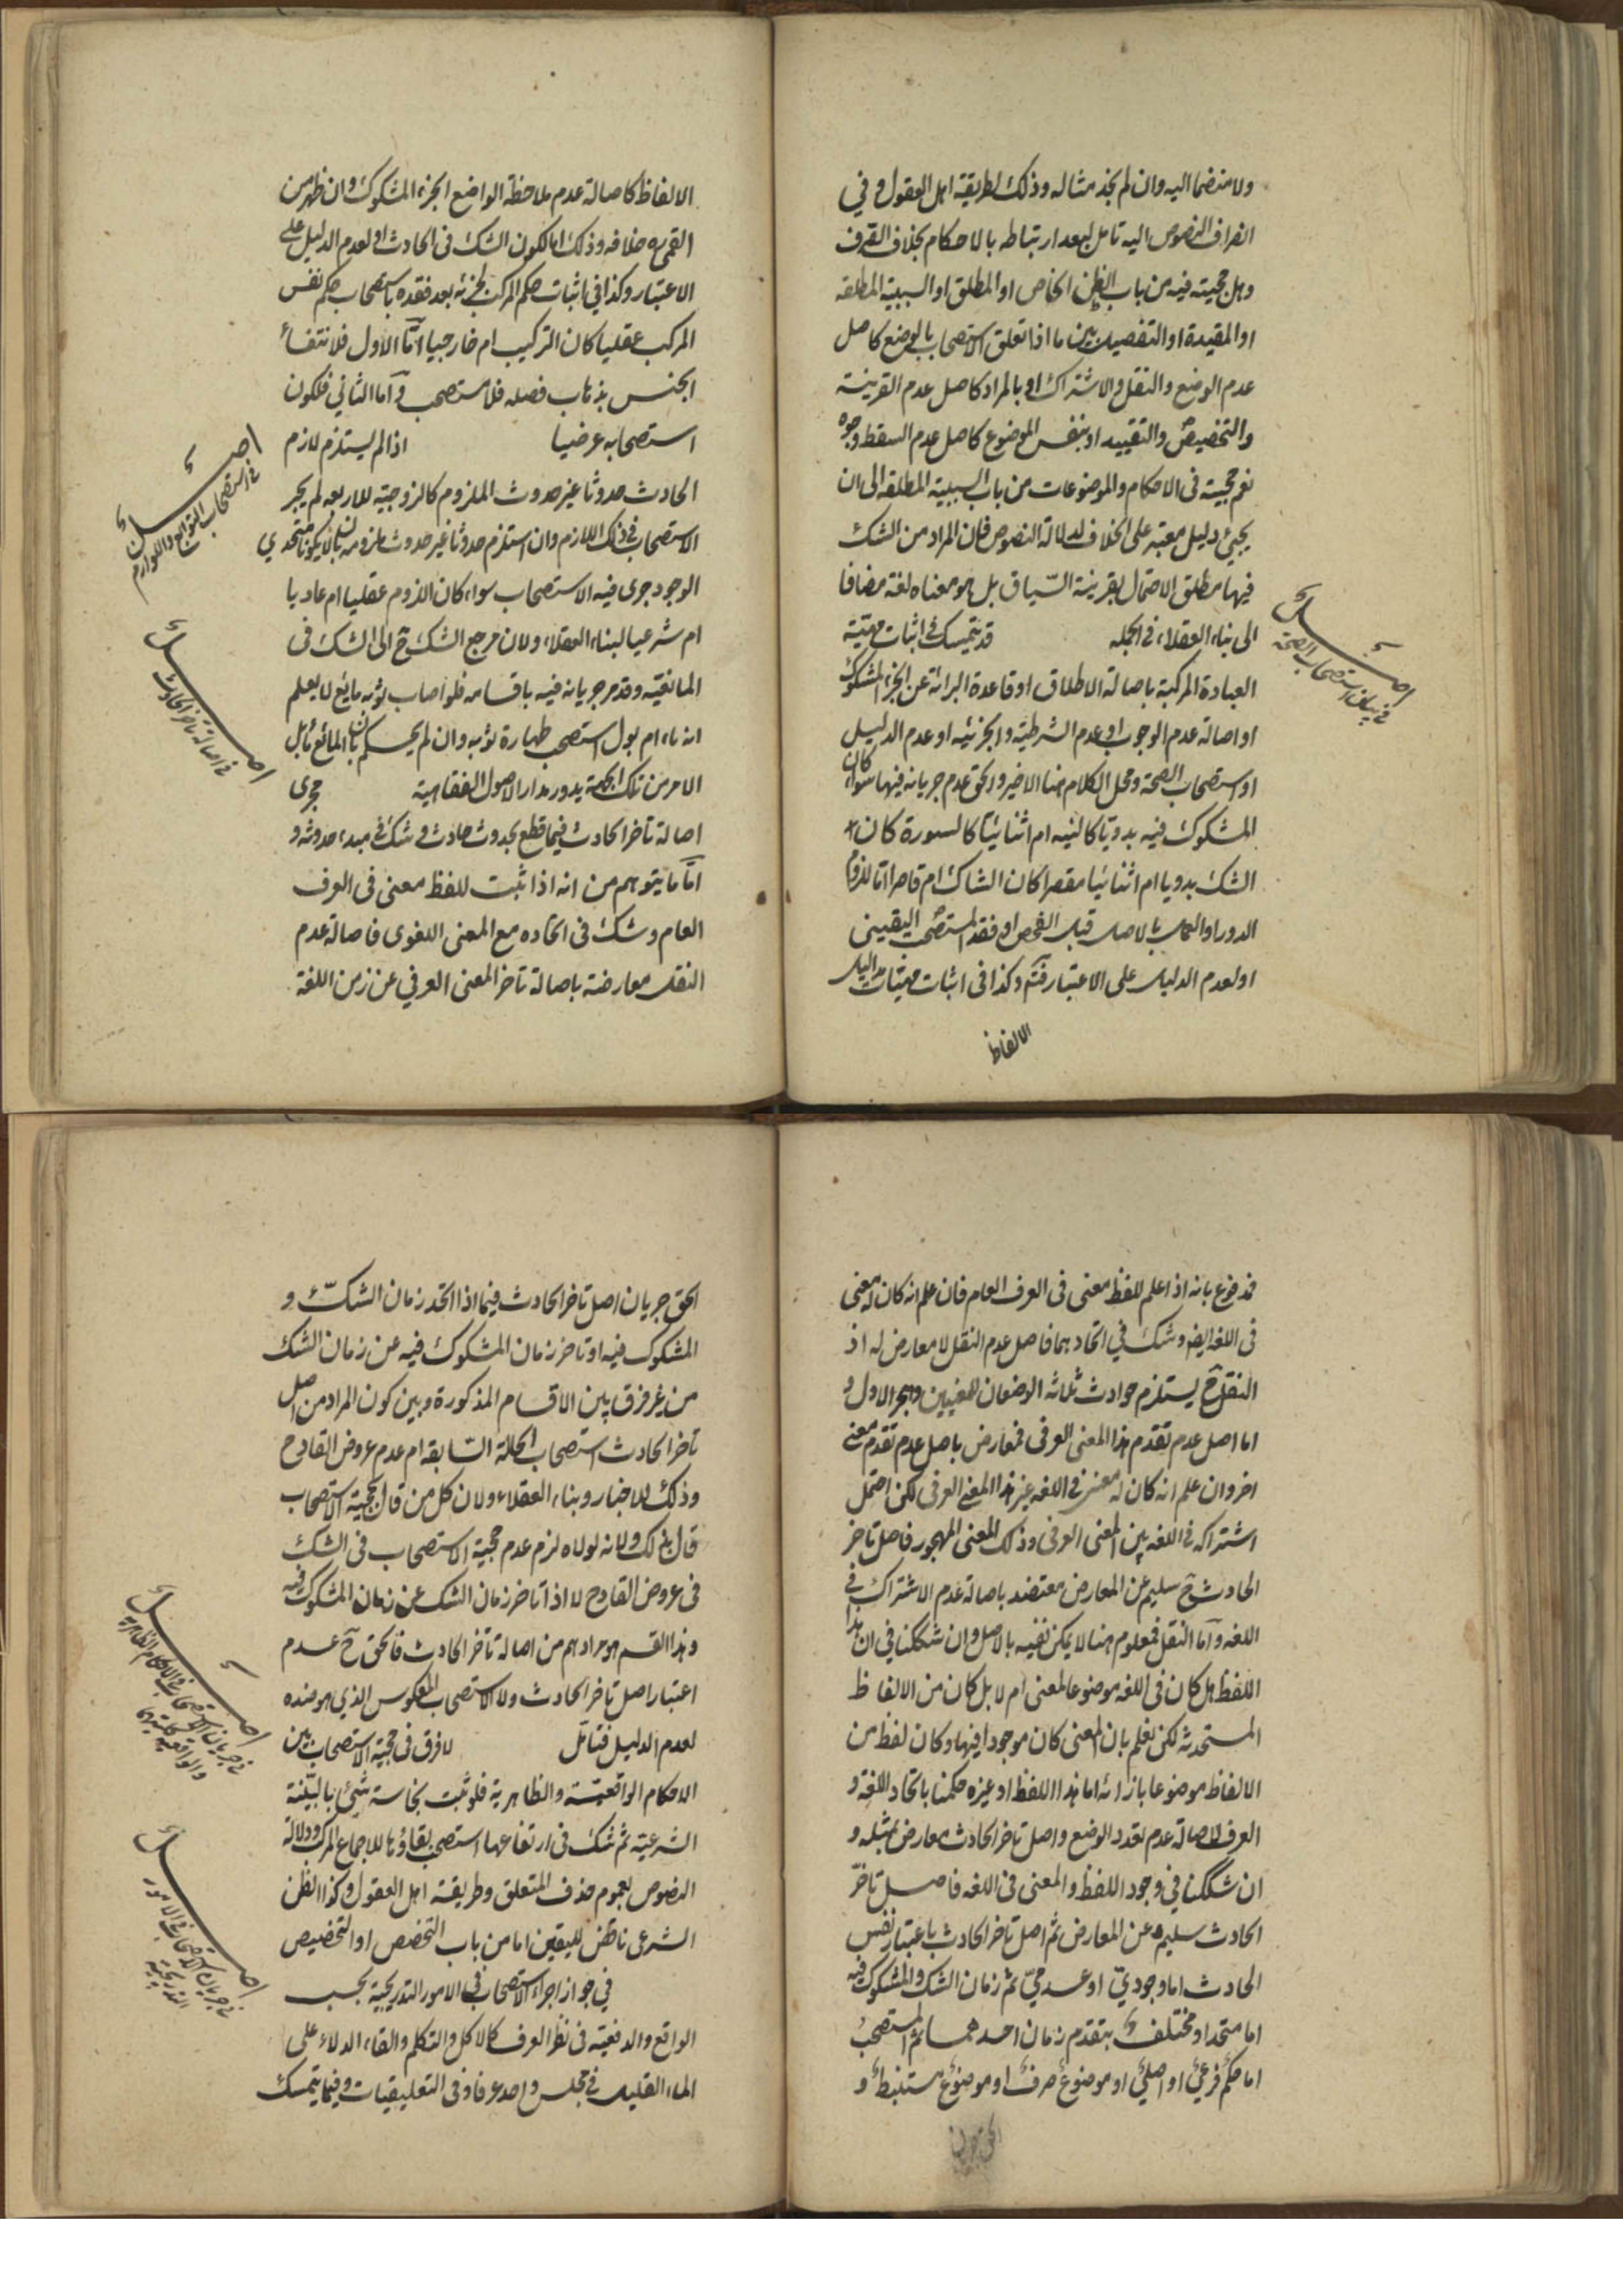 ولا منضما اليه وان لم نجد مثاله وذلك لطريقة اهل العقول و في
انصراف النصوص اليه تامل لبعد ارتباطه بالاحكام بخلاف الصرف
وهل حجيته فيه من باب الظن الخاص او المطلق او السببية المطلقه
او المقيدة او التفصيل بين ما اذا تعلق الاستصحاب بالوضع كاصل
عدم الوضع والنقل والاشتراك او بالمراد كاصل عدم القرينة
والتخصيص والتقييد او بنفس الموضوع كاصل عدم السقط وجوه
نعم حجيته فى الاحكام والموضوعات من باب السببية المطلقه الى ان
يجيئ دليل معتبر على الخلاف لدلالة النصوص فان المراد من الشك
فيها مطلق الاحتمال بقرينة السّياق بل هو معناه لغة مضافا
الى بناء العقلاء فى الجمله قد يتمسك فى اثبات مهيّة
العبادة المركبة باصالة الاطلاق او قاعدة البرائة عن الجزء المشكوك
او اصالة عدم الوجوب او عدم الشرطية والجزئية او عدم الدليل
او استصحاب الصحة ومحل الكلام هنا الاخير والحق عدم جريانه فيها سواء كان
المشكوك فيه بدويّا كالنيه ام اثنائيّا كالسورة كان
الشك بدويا ام اثنائيا مقصرا كان الشاك ام قاصرا اما للزوم
الدور او العمل بالاصل قبل الفحص او فقد المستصحب اليقينى
او لعدم الدليل على الاعتبار فتم وكذا فى اثبات مهيّات مداليل
الالفاظ
اصل
فى بيان استصحاب الصحة
الالفاظ كاصالة عدم ملاحظة الواضع الجزء المشكوك وان ظهر من
القمى ره خلافه وذلك اما لكون الشك فى الحادث او لعدم الدليل على
الاعتبار وكذا فى اثبات حكم المركب لجزئه بعد فقده باستصحاب حكم نفس
المركب عقليا كان التركيب ام خارجيا امّا الاول فلانتفاء
الجنس بذهاب فصله فلا مستصحب و امّا الثاني فلكون
استصحابه عرضيا اذا لم يستلزم لازم
الحادث حدوثا غير حدوث الملزوم كالزوجية للاربعه لم يجر
الاستصحاب فى ذلك اللازم وان استلزم حدوثا غير حدوث ملزومه بان لا يكونا متحدي
الوجود جرى فيه الاستصحاب سواء كان اللزوم عقليا ام عاديا
ام شرعيا لبناء العقلاء ولان مرجع الشك ح الى الشك فى
المانعيّه وقد مر جريانه فيه باقسامه فلو اصاب ثوبه مايع لا يعلم
انه ماء ام بول استصحب طهارة ثوبه وان لم يحكم بان المائع ماء بل
الامر من تلك الجهة يدور مدار الاصول الفقاهية مجرى
اصالة تاخر الحادث فيما قطع بحدوث حادث و شك فى مبدء حدوثه و
امّا ما يتوهم من انه اذا ثبت للفظ معنى فى العرف
العام وشك فى اتحاده مع المعنى اللغوى فاصالة عدم
النقل معارضة باصالة تاخر المعنى العرفي عن زمن اللغة
اصل
فى استصحاب التوابع واللوازم
اصل
فى اصالة تاخر الحادث
فمدفوع بانه اذا علم للفظ معنى فى العرف العام فان علم انه كان له معنى
فى اللغة ايضا و شك في اتحادهما فاصل عدم النقل لا معارض له اذ
النقل ح يستلزم حوادث ثلاثه الوضعان للمعنيين وهجر الاول و
اما اصل عدم تقدم هذا المعنى العرفى فمعارض باصل عدم تقدم معنى
اخر وان علم انه كان له معنى فى اللغه غير هذا المعنى العرفى لكن احتمل
اشتراكه فى اللغه بين المعنى العرفى وذلك المعنى المهجور فاصل تاخر
الحادث ح سليم عن المعارض معتضد باصالة عدم الاشتراك فى
اللغه و امّا النقل فمعلوم هنا لا يمكن نفيه بالاصل وان شككنا في ان هذا
اللفظ هل كان فى اللغه موضوعا لمعنى ام لا بل كان من الالفاظ
المستحدثه لكن نعلم بان المعنى كان موجودا فيها وكان لفظ من
الالفاظ موضوعا بازائه اما هذا اللفظ او غيره حكمنا باتحاد اللغة و
العرف لاصالة عدم تعدد الوضع واصل تاخر الحادث معارض بمثله و
ان شككنا في وجود اللفظ والمعنى فى اللغه فاصل تاخّر
الحادث سليم عن المعارض ثم اصل تاخر الحادث باعتبار نفس
الحادث اما وجودىّ او عدمىّ ثم زمان الشك والمشكوك فيه
اما متحد او مختلف بتقدم زمان احدهما ثم المستصحب
اما حكم فرعىّ او اصلىّ او موضوع صرف او موضوع مستنبط و
الحق جريان
الحق جريان اصل تاخر الحادث فيما اذا اتحد زمان الشكّ و
المشكوك فيه او تاخر زمان المشكوك فيه عن زمان الشك
من غير فرق بين الاقسام المذكورة وبين كون المراد من اصل
تاخر الحادث استصحاب الحالة السّابقه ام عدم عروض القادح
وذلك للاخبار وبناء العقلاء ولان كل من قال بحجية الاستصحاب
قال بذلك ولانه لولاه لزم عدم حجية الاستصحاب فى الشك
فى عروض القادح لا اذا تاخر زمان الشك عن زمان المشكوك فيه
وهذا القسم هو مرادهم من اصالة تاخر الحادث فالحق ح عدم
اعتبار اصل تاخر الحادث ولا الاستصحاب المعكوس الذي هو ضده
لعدم الدليل فتامّل لا فرق فى حجية الاستصحاب بين
الاحكام الواقعيّة والظاهرية فلو ثبت نجاسة شئ بالبيّنة
الشرعية ثم شك فى ارتفاعها استصحب بقاؤها للاجماع المركب ودلالة
النصوص لعموم حذف المتعلق وطريقة اهل العقول وكذا الظن
الشرعى ناقض لليقين اما من باب التخصص او التخصيص
في جواز اجراء الاستصحاب فى الامور التدريجية بحسب
الواقع والدفعية فى نظر العرف كالاكل والتكلم والقاء الدلاء على
الماء القليل فى مجلس واحد عرفا وفى التعليقيات وفيما يتمسك
اصل
فى جريان الاستصحاب فى الاحكام الظاهرية
والواقعية
اصل
فى جريان الاستصحاب فى الامور
التدريجية